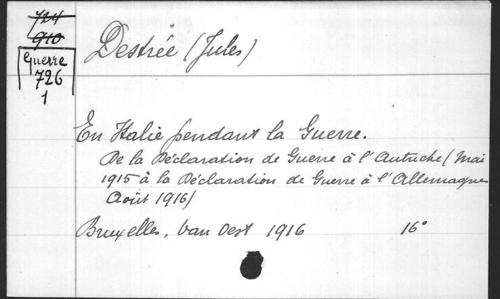 724
910
Guerre
726
1
Destrée (Jules)
En Italie pendant la Guerre.
De la Déclaration de Guerre à l'Autriche (Mai
1915 à la Déclaration de Guerre à l'Allemagne
Août 1916)
Bruxelles, Van Oest 1916 16°